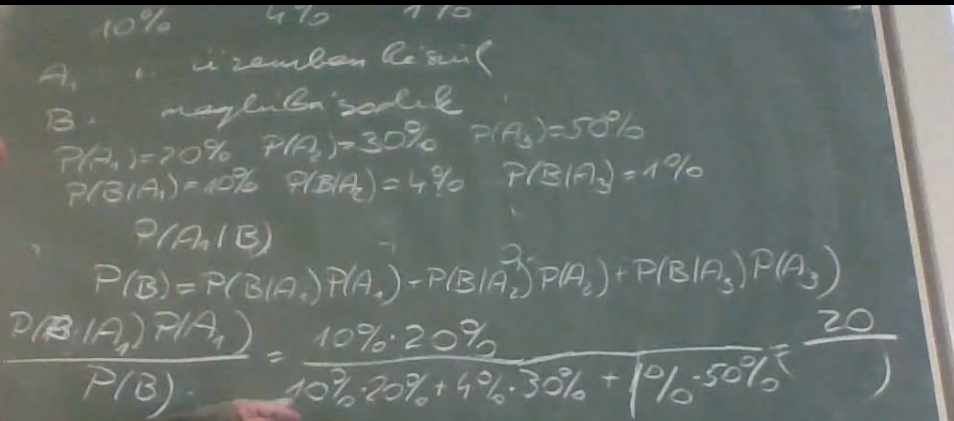 10% 4% 1%
A₁ : üzemben készül
B : meghibásodik
P(A₁)=20% P(A₂)=30% P(A₃)=50%
P(B|A₁)=10% P(B|A₂)=4% P(B|A₃)=1%
P(A₁|B)
P(B)=P(B|A₁)P(A₁)+P(B|A₂)P(A₂)+P(B|A₃)P(A₃)
P(B|A₁)P(A₁) / P(B) = 10%·20% / 10%·20%+4%·30%+1%·50% = 20 /